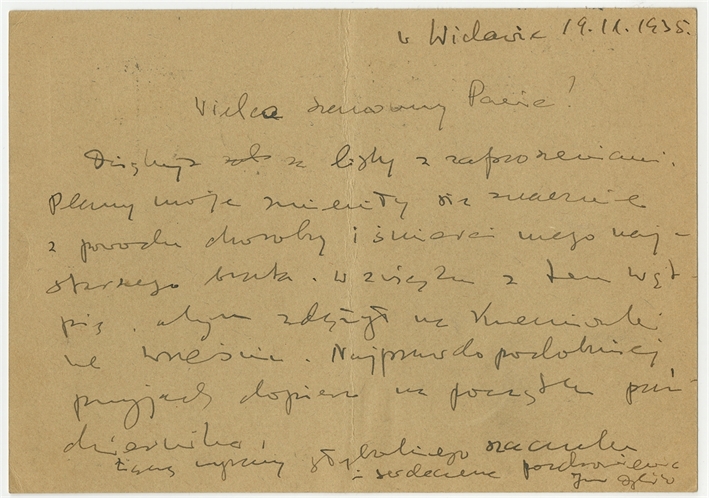 w Widawie 19.II.1935.
Wielce szanowny Panie!
Dziękuję za listy z zaproszeniami.
Plany moje zmieniły się znacznie
z powodu choroby i śmierci mego naj-
starszego brata. W związku z tem wąt-
pię, abym zdążył na
we wrześniu. Najprawdopodobniej
przyjadę dopiero na początku paź-
dziernika.
Łączę wyrazy głębokiego szacunku
i serdeczne pozdrowienia